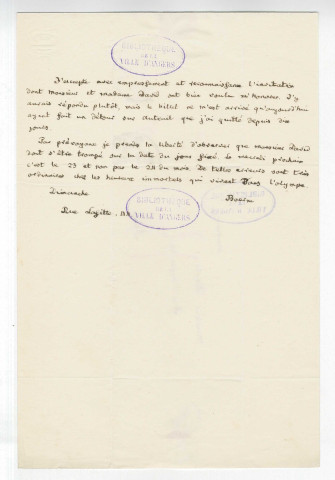 BIBLIOTHEQUE
DE LA
VILLE D'ANGERS
J'accepte avec empressement et reconnaissance l'invitation
dont monsieur et madame David ont bien voulu m'honorer. J'y
aurais répondu plutôt, mais le billet ne m'est arrivé qu'aujourd'hui
ayant fait un détour sur Auteuil que j'ai quitté depuis dix
jours.
Par prévoyance je prends la liberté d'observer que monsieur David
doit s'être trompé sur la date du jour fixé. Le mercredi prochain
c'est le 23 et non pas le 28 du mois. De telles erreurs sont très
ordinaires chez les hommes immortels qui vivent dans l'olympe.
Dimanche
BIBLIOTHEQUE
DE LA
VILLE D'ANGERS
Rue Lafitte